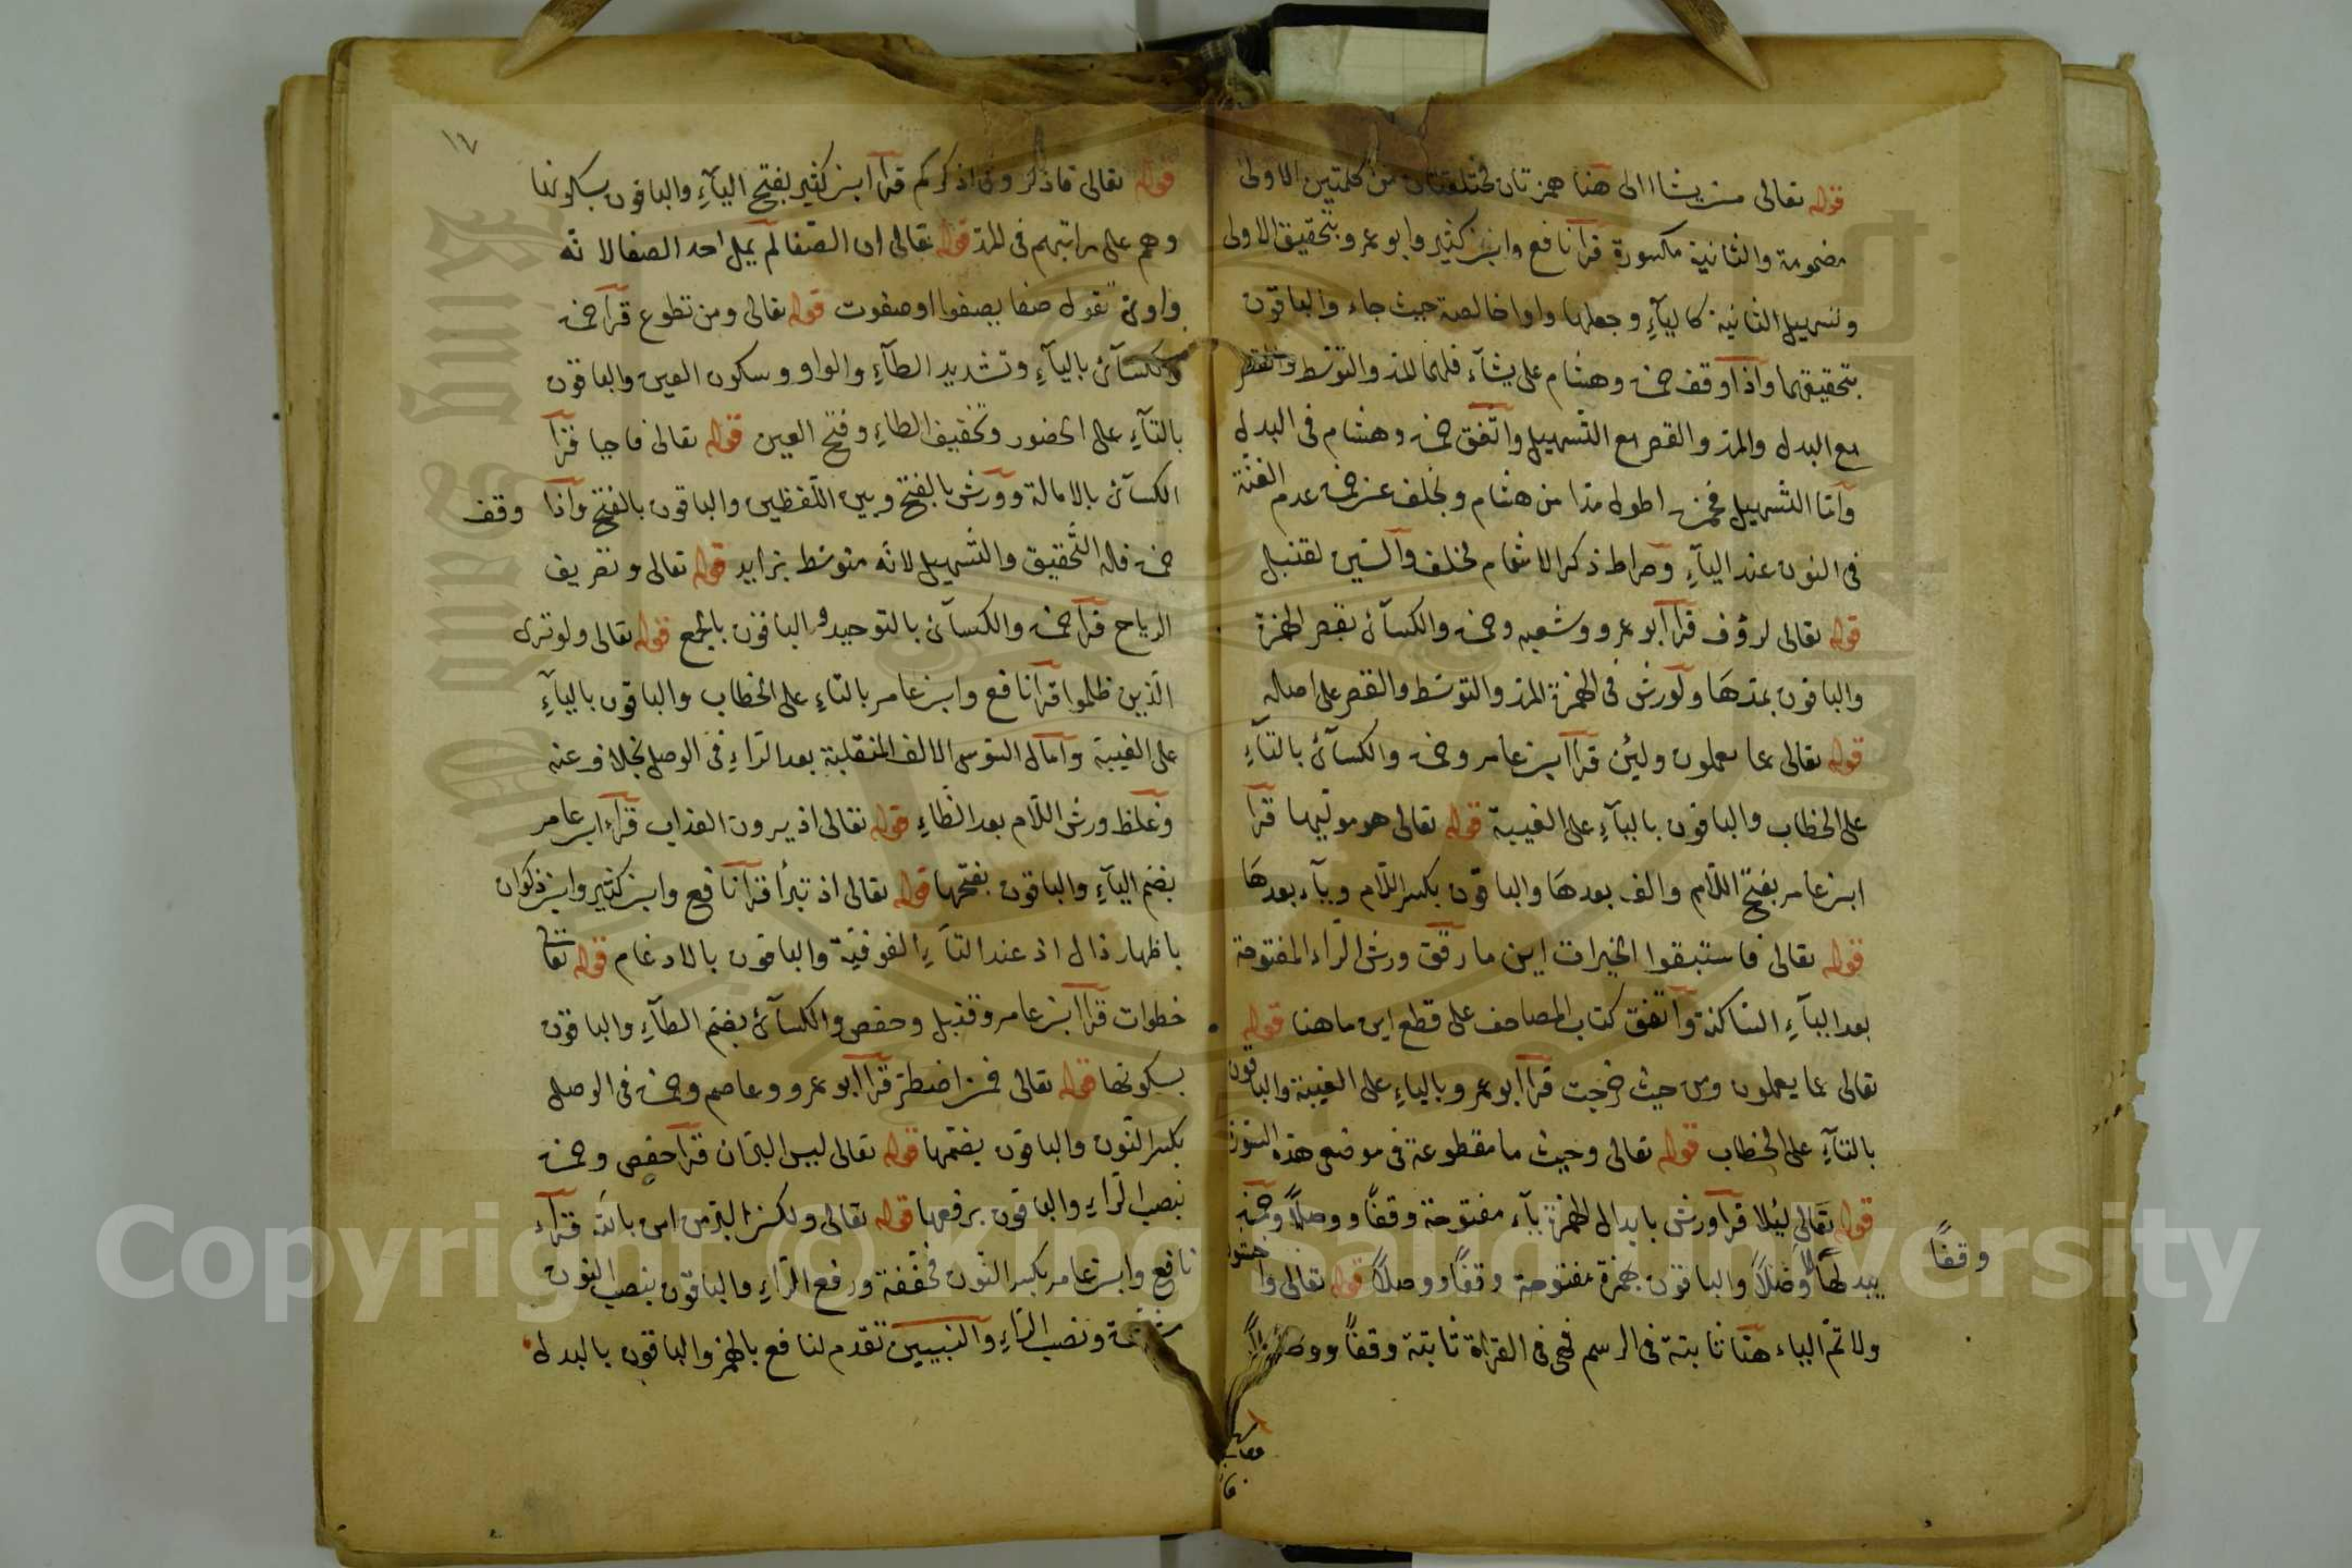 قوله تعالى من يشاء الى هنا همزتان مختلفتان من كلمتين الاولى
مضمومة والثانية مكسورة قرأ نافع وابن كثير وابو عمرو بتحقيق الاولى
وتسهيل الثانية كاليآءِ وجعلها واوا خالصة حيث جاء والباقون
بتحقيقهما واذا وقف حمزة وهشام على يشآء فلهما المد والتوسط والقصر
مع البدل والمد والقصر مع التسهيل واتفق حمزة وهشام في البدل
وأمّا التسهيل فحمزة اطول مدا من هشام وبخلف عن حمزة عدم الغنّة
في النون عند اليآءِ وصراط ذكر الاشمام لخلف والسّين لقنبل
قوله تعالى لرؤف قرأ أبو عمرو وشعبه وحمزة والكسآئ بقصر الهمزة
والباقون بمدهَا ولورش في الهمزة المد والتوسّط والقصر على اصله
قوله تعالى عما يعملون ولئن قرأ ابن عامر وحمزة والكسآئ بالتآءِ
على الخطاب والباقون باليآءِ على الغيبة قوله تعالى هو موليها قرأ
ابن عامر بفتح اللّام والف بعدهَا والباقون بكسر اللّام ويآء بعدهَا
قوله تعالى فاستبقوا الخيرات اين ما رقق ورش الرّاء المفتوحة
بعد اليآءِ السّاكنة واتفق كتاب المصاحف على قطع اين ما هنا قوله
تعالى عما يعملون ومن حيث خرجت قرأ ابو عمرو بالياءِ على الغيبة والباقون
بالتآءِ على الخطاب قوله تعالى وحيث ما مقطوعة في موضعى هذه السّورة
قوله تعالى ليلا قرأ ورش بابدال الهمزة يآء مفتوحة وقفاً ووصلاً وحمزة
يبدلها لا وَصْلاً والباقون بهمزة مفتوحة وقفاً ووصلاً قوله تعالى واخشونى
وقفاً
ولاتمّ الياء هنا ثابتة في الرسم فهى في القراة ثابتة وقفاً ووصلاً
١٧
قوله تعالى فاذكرونى اذكركم قرأ ابن كثير بفتح اليآءِ والباقون بسكونها
وهم على مراتبهم في المد قوله تعالى ان الصّفا لم يمل احد الصفا لانّه
واوىّ تقول صفا يصفوا وصفوت قوله تعالى ومن تطوع قرأ حمزة
والكسآئ باليآءِ وتشديد الطآءِ والواو وسكون العين والباقون
بالتآءِ على الحضور وتخفيف الطاءِ وفتح العين قوله تعالى فاحيا قرأ
الكسآئ بالامالة وورش بالفتح وبين اللّفظين والباقون بالفتح واذا وقف
حمزة فله التّحقيق والتّسهيل لانّه متوسّط بزايد قوله تعالى وتصريف
الرياح قرأ حمزة والكسآئ بالتوحيد والباقون بالجمع قوله تعالى ولو ترى
الّذين ظلموا قرأ نافع وابن عامر بالتاءِ على الخطاب والباقون باليآءِ
على الغيبة وامال السّوسى الالف المنقلبة بعد الرّاءِ في الوصل بخلاف عنه
وغلّظ ورش اللّام بعد الظاءِ قوله تعالى اذ يرون العذاب قرأ ابن عامر
بضم اليآءِ والباقون بفتحها قوله تعالى اذ تبرأ قرأ نافع وابن كثير وابن ذكوان
باظهار ذال اذ عند التآءِ الفوقيّة والباقون بالادغام قوله تعالى
خطوات قرأ ابن عامر وقنبل وحفص والكسآئ بضم الطآءِ والباقون
بسكونها قوله تعالى فمن اضطرّ قرأ ابو عمرو وعاصم وحمزة في الوصل
بكسر النّون والباقون بضمّها قوله تعالى ليس البرّ ان قرأ حفص وحمزة
بنصب الرّاءِ والباقون برفعها قوله تعالى ولكن البرّ من امن بالله قرأ
نافع وابن عامر بكسر النّون مخففة ورفع الرّاءِ والباقون بنصب النون
مشدّدة ونصب الرّاءِ والنبيين تقدم لنافع بالهمز والباقون بالبدل
Copyright © King Saud University